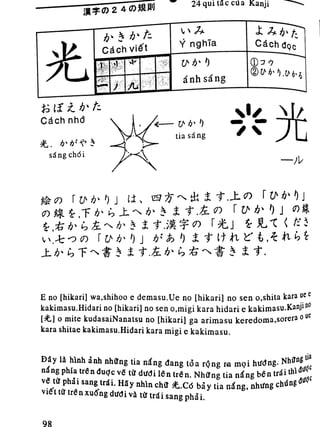 漢字の24の規則
24 qui tắc của Kanji
かきかた
Cách viết
いみ
Ý nghĩa
よみかた
Cách đọc
光
ひかり
ánh sáng
①コウ
②ひかり.ひかる
おぼえかた
Cách nhớ
光．かがやき
sáng chói
ひかり
tia sáng
光
一ル
絵の「ひかり」は、四方へ出ます.上の「ひかり」
の線を,下から上へかきます.左の「ひかり」の線
を,右から左へかきます.漢字の「光」を見てくださ
い.七つの「ひかり」がありますけれども,それらを
上から下へ書きます.左から右へ書きます.
E no [hikari] wa,shihoo e demasu.Ue no [hikari] no sen o,shita kara ue e
kakimasu.Hidari no [hikari] no sen o,migi kara hidari e kakimasu.Kanji no
[光] o mite kudasaiNanatsu no [hikari] ga arimasu keredoma,sorera o ue
kara shitae kakimasu.Hidari kara migi e kakimasu.
Đây là hình ảnh những tia nắng đang tỏa rộng ra mọi hướng. Những tia
nắng phía trên được vẽ từ dưới lên trên. Những tia nắng bên trái thì được
vẽ từ phải sang trái. Hãy nhìn chữ 光. Có bảy tia nắng, nhưng chúng được
viết từ trên xuống dưới và từ trái sang phải.
98